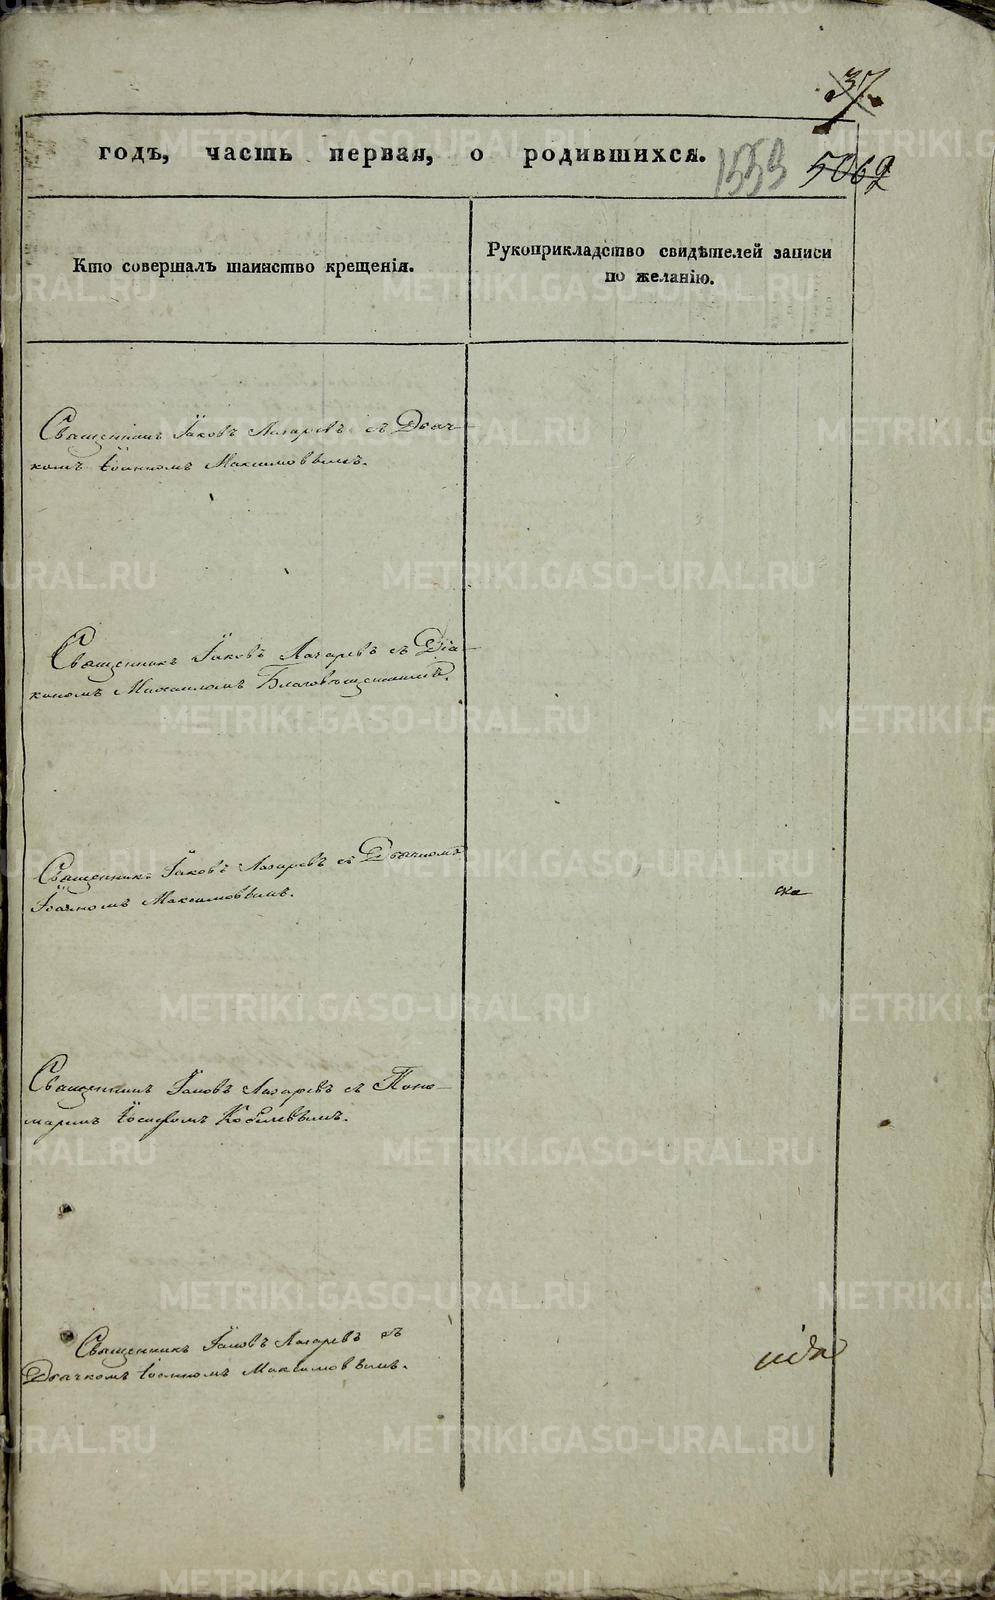 37
годъ, часть первая, о родившихся.
1553 5069
Кто совершалъ таинство крещенія.
Рукоприкладство свидѣтелей записи
по желанію.
Священникъ Іаковъ Лазаревъ съ Дьяч-
комъ Іоанномъ Максимовымъ.
Священникъ Іаковъ Лазаревъ съ Діа-
кономъ Михаиломъ Благовѣщенскимъ.
Священникъ Іаковъ Лазаревъ съ Дьячкомъ
Іоанномъ Максимовымъ.
ска
Священникъ Іаковъ Лазаревъ съ Поно-
маремъ Іосифомъ Кобелевымъ.
Священникъ Іаковъ Лазаревъ съ
Дьячкомъ Іоанномъ Максимовымъ.
METRIKI.GASO-URAL.RU